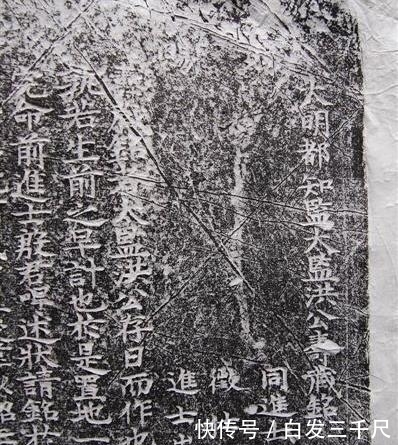 大明都知監太監洪公壽藏銘
同進
徵仕
進士
太監洪公存日而作也
若生前之早計也於是置地一
命前進士殷君述狀請銘
快传号 / 白发三千尺